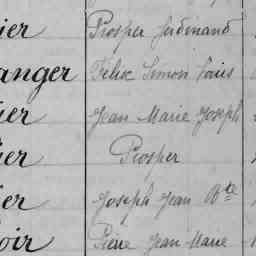 ier Prosper Ferdinand
anger Félix Simon Louis
ier Jean Marie Joseph
ier Prosper
ier Joseph Jean Bte
oir Pierre Jean Marie